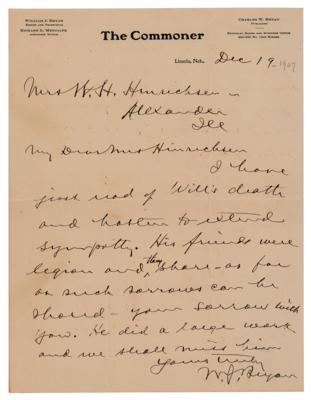 WILLIAM J. BRYAN
EDITOR AND PROPRIETOR
RICHARD L. METCALFE
ASSOCIATE EDITOR
CHARLES W. BRYAN
PUBLISHER
The Commoner
Lincoln, Neb., Dec 19 1907
Mrs W. H. Hinrichsen
Alexander
Ill
My Dear Mrs Hinrichsen
I have
just read of Will's death
and hasten to extend
sympathy. His friends were
legion and they share - as far
as such sorrows can be
shared - your sorrow with
you. He did a large work
and we shall miss him
Yours truly
W. J. Bryan